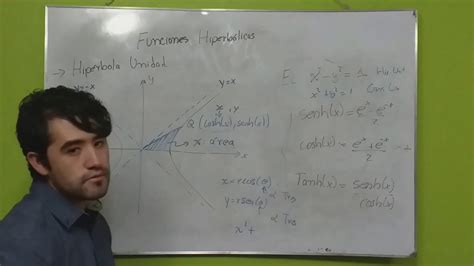 Funciones Hiperbólicas
→ Hiperbola Unidad
y
y=-x
y=x
x , y
Q (cosh(x), senh(x))
→ x área
x
x = r cos(
y = r sen(
x² +
x² - y² = 1
x² + y² = 1
senh(x) = e^x - e^-x / 2
cosh(x) = e^x + e^-x / 2
Tanh(x) = senh(x) / cosh(x)